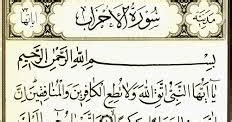 مدنية سُورَةُ الْأَحْزَابِ اياتها
بِسْمِ اللهِ الرَّحْمٰنِ الرَّحِيمِ
يَا اَيُّهَا النَّبِيُّ اتَّقِ اللهَ وَلَا تُطِعِ الْكَافِرِينَ وَالْمُنَافِقِينَ اِنَّ